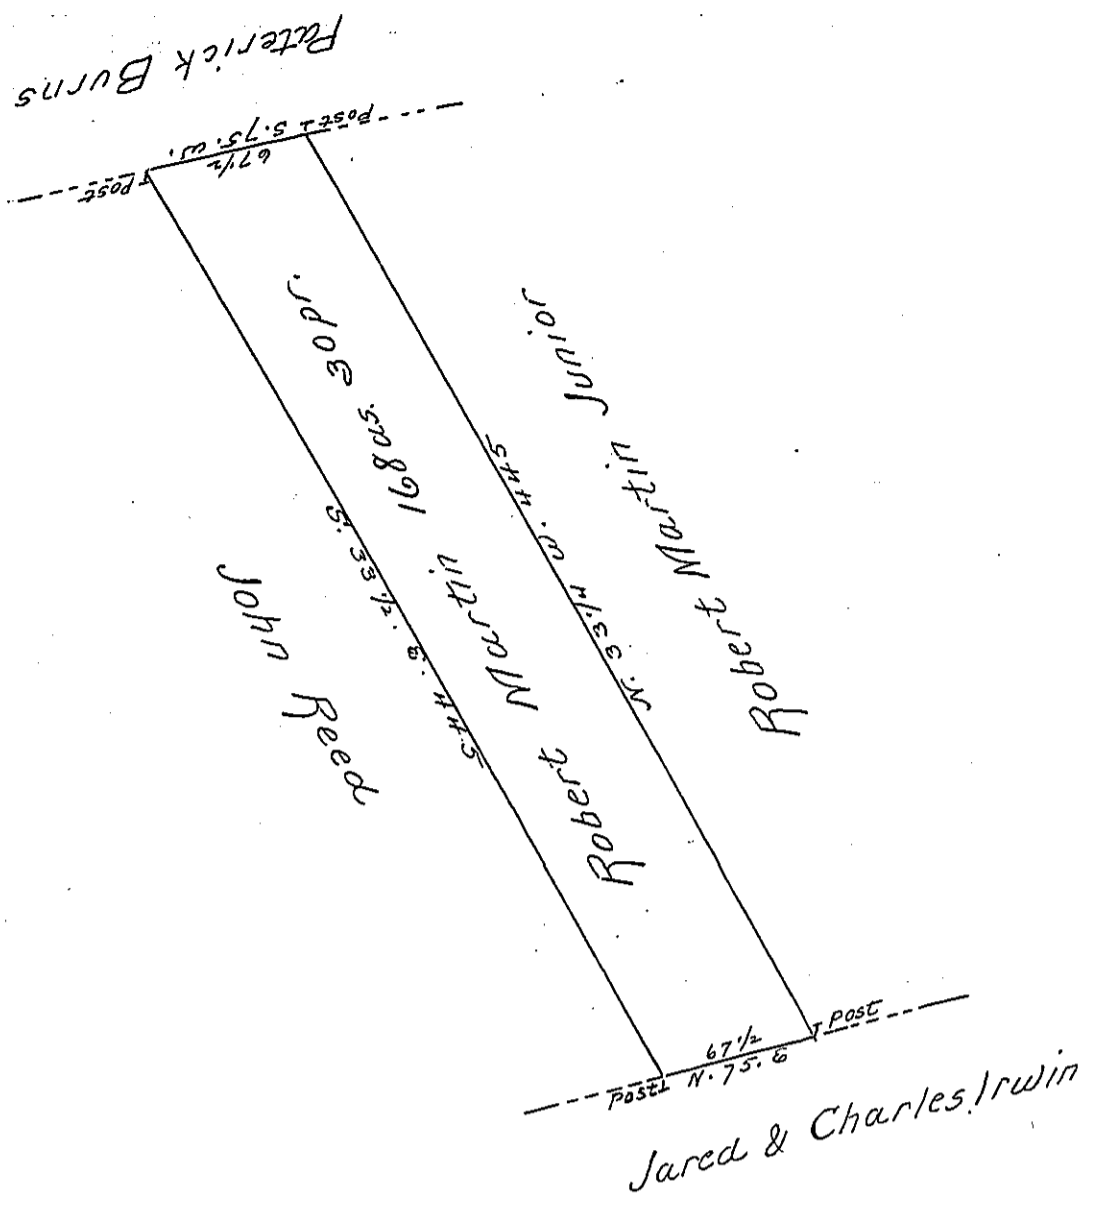 Paterick Burns
Post
S. 75. W.
67 1/2
Post
Robert Martin 168as. 30pr.
Robert Martin Junior
N. 33 1/4 W. 445
S. 33 1/2. E. 445
John Reed
67 1/2
N. 75. E
Post
Post
Jared & Charles Irwin